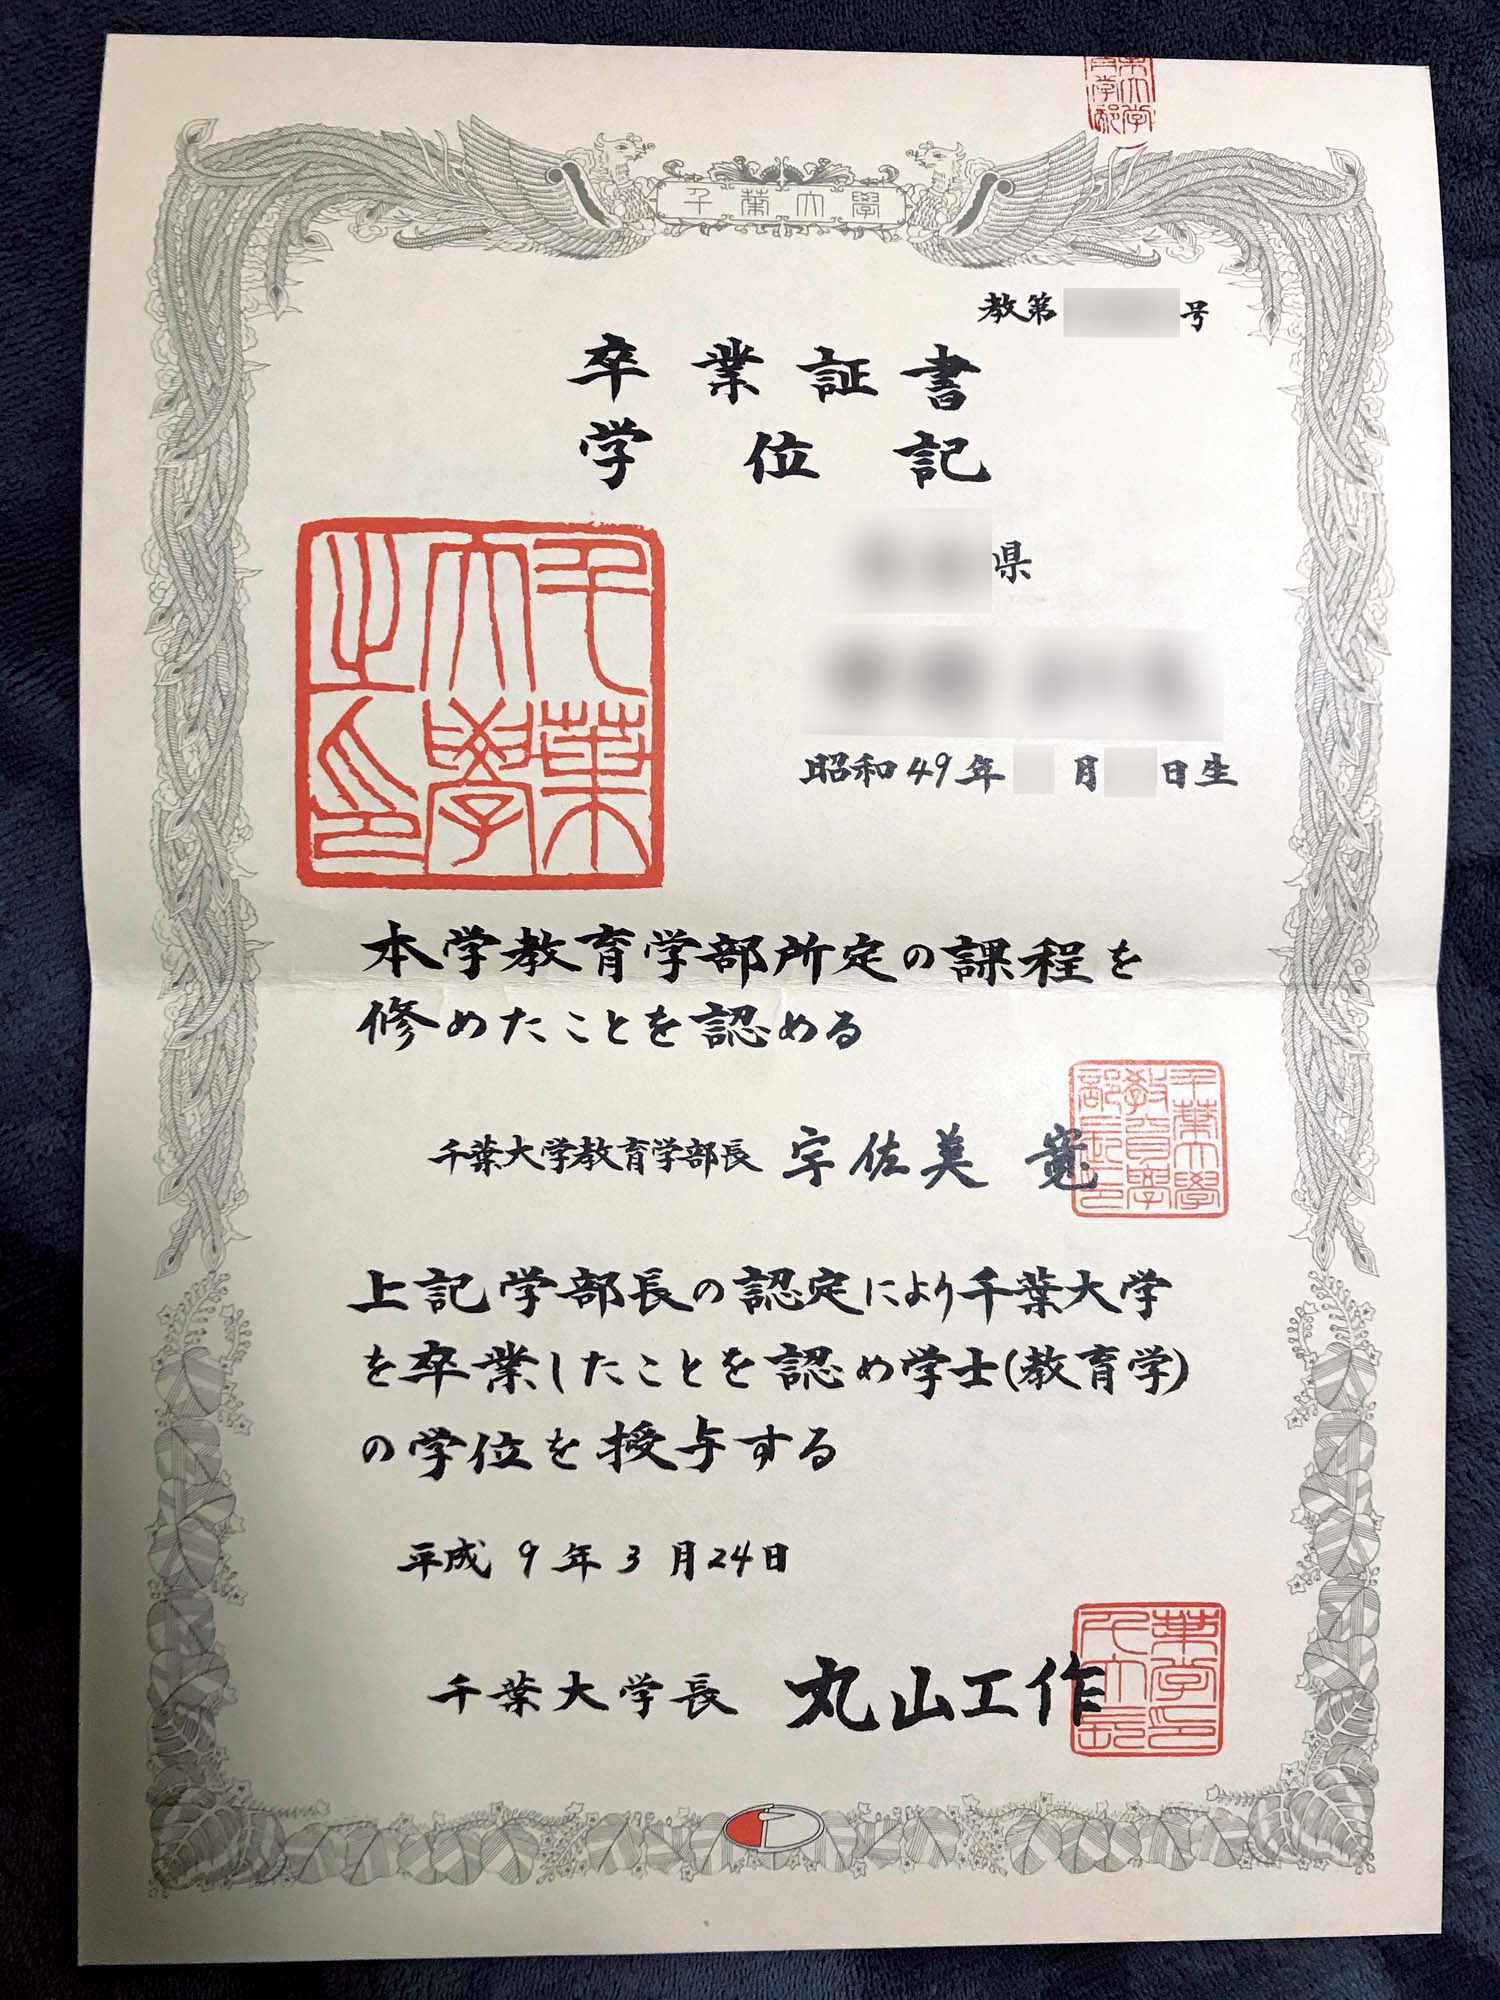 千葉大學
教第 号
卒業証書
学位記
千葉大學之印
県
昭和49年 月 日生
本学教育学部所定の課程を
修めたことを認める
千葉大学教育学部長 宇佐美 寛
千葉大學教育學部長印
上記学部長の認定により千葉大学
を卒業したことを認め学士(教育学)
の学位を授与する
平成 9年 3月24日
千葉大学長 丸山工作